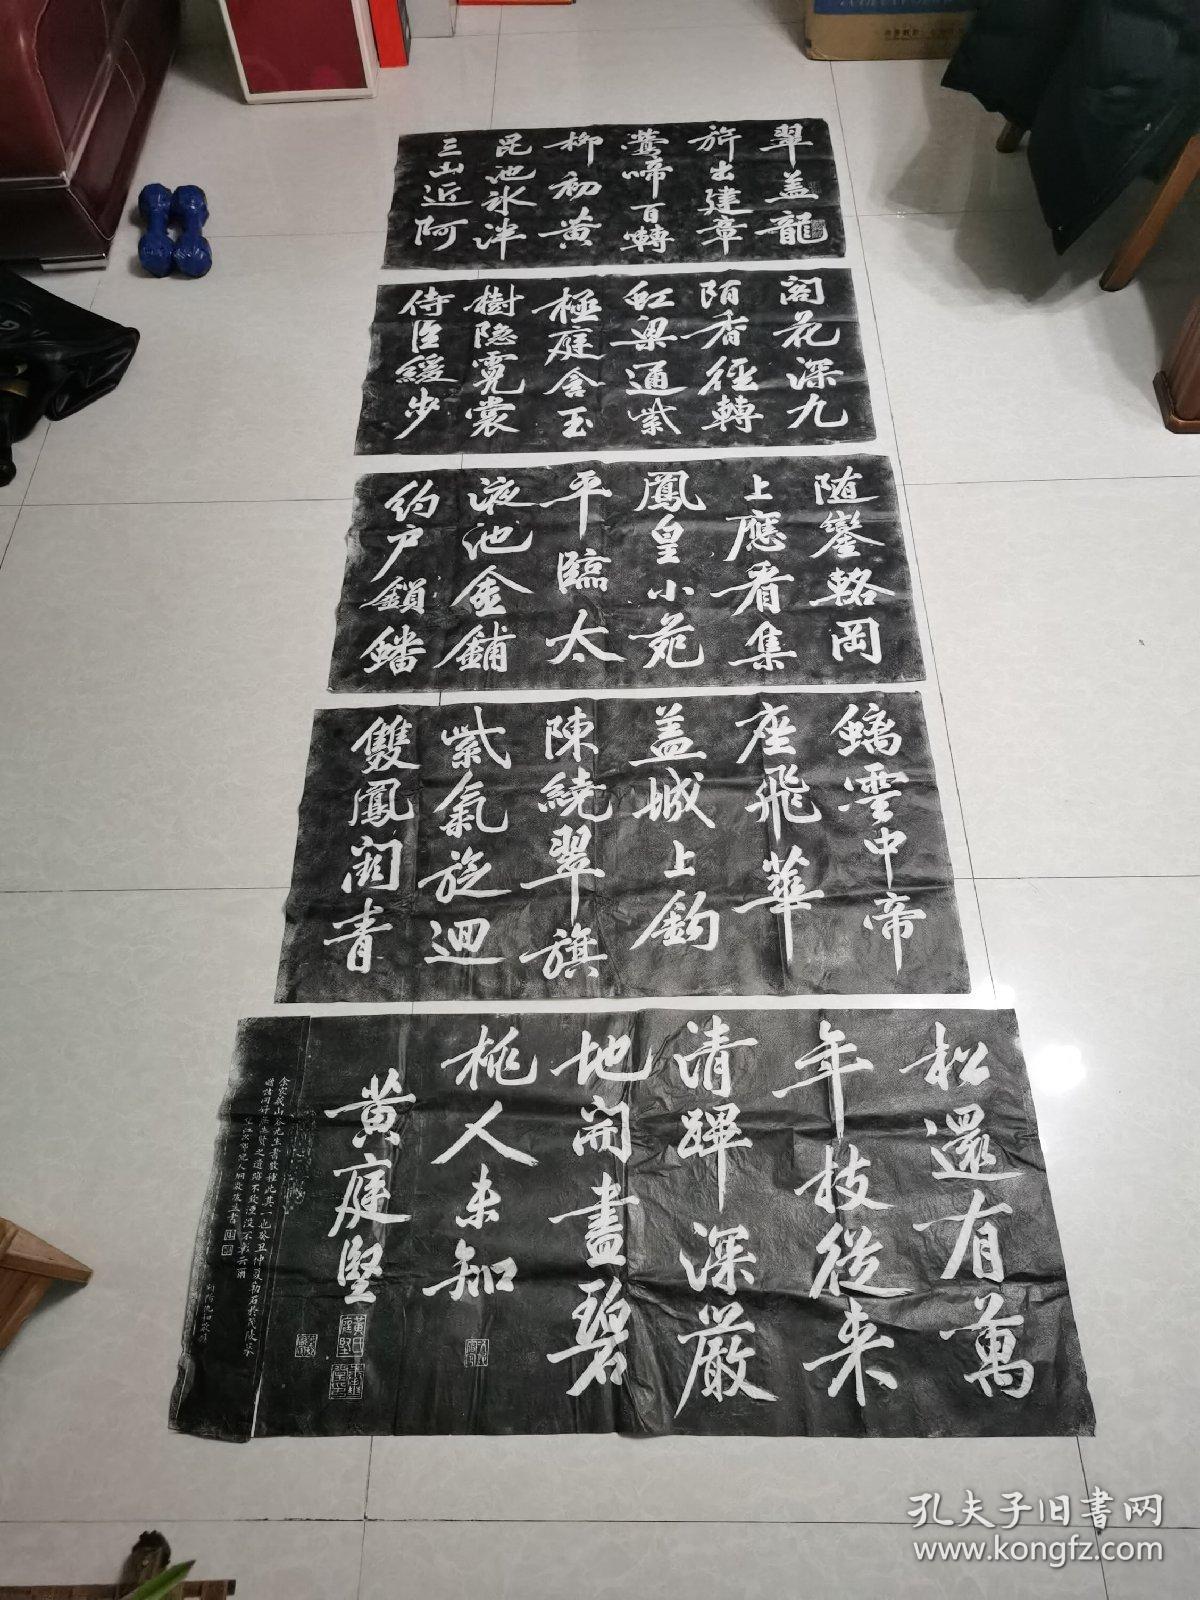 翠盖龍
旂出建章
鶯啼百囀
柳初黄
昆池氷泮
三山近阿
閣花深九
陌香徑轉
虹梁通紫
極庭含玉
樹隐霓裳
侍臣緩步
随鑾輅岡
上應看集
鳳皇小苑
平臨太
液池金鋪
約户鎖蟠
螭雲中帝
座飛華
盖城上鈎
陳繞翠旗
紫氣旋迴
雙鳳闕青
松還有萬
年技從来
清蹕深嚴
地開盡碧
桃人未知
黄庭堅
黄氏庭堅
孔夫子旧书网
www.kongfz.com